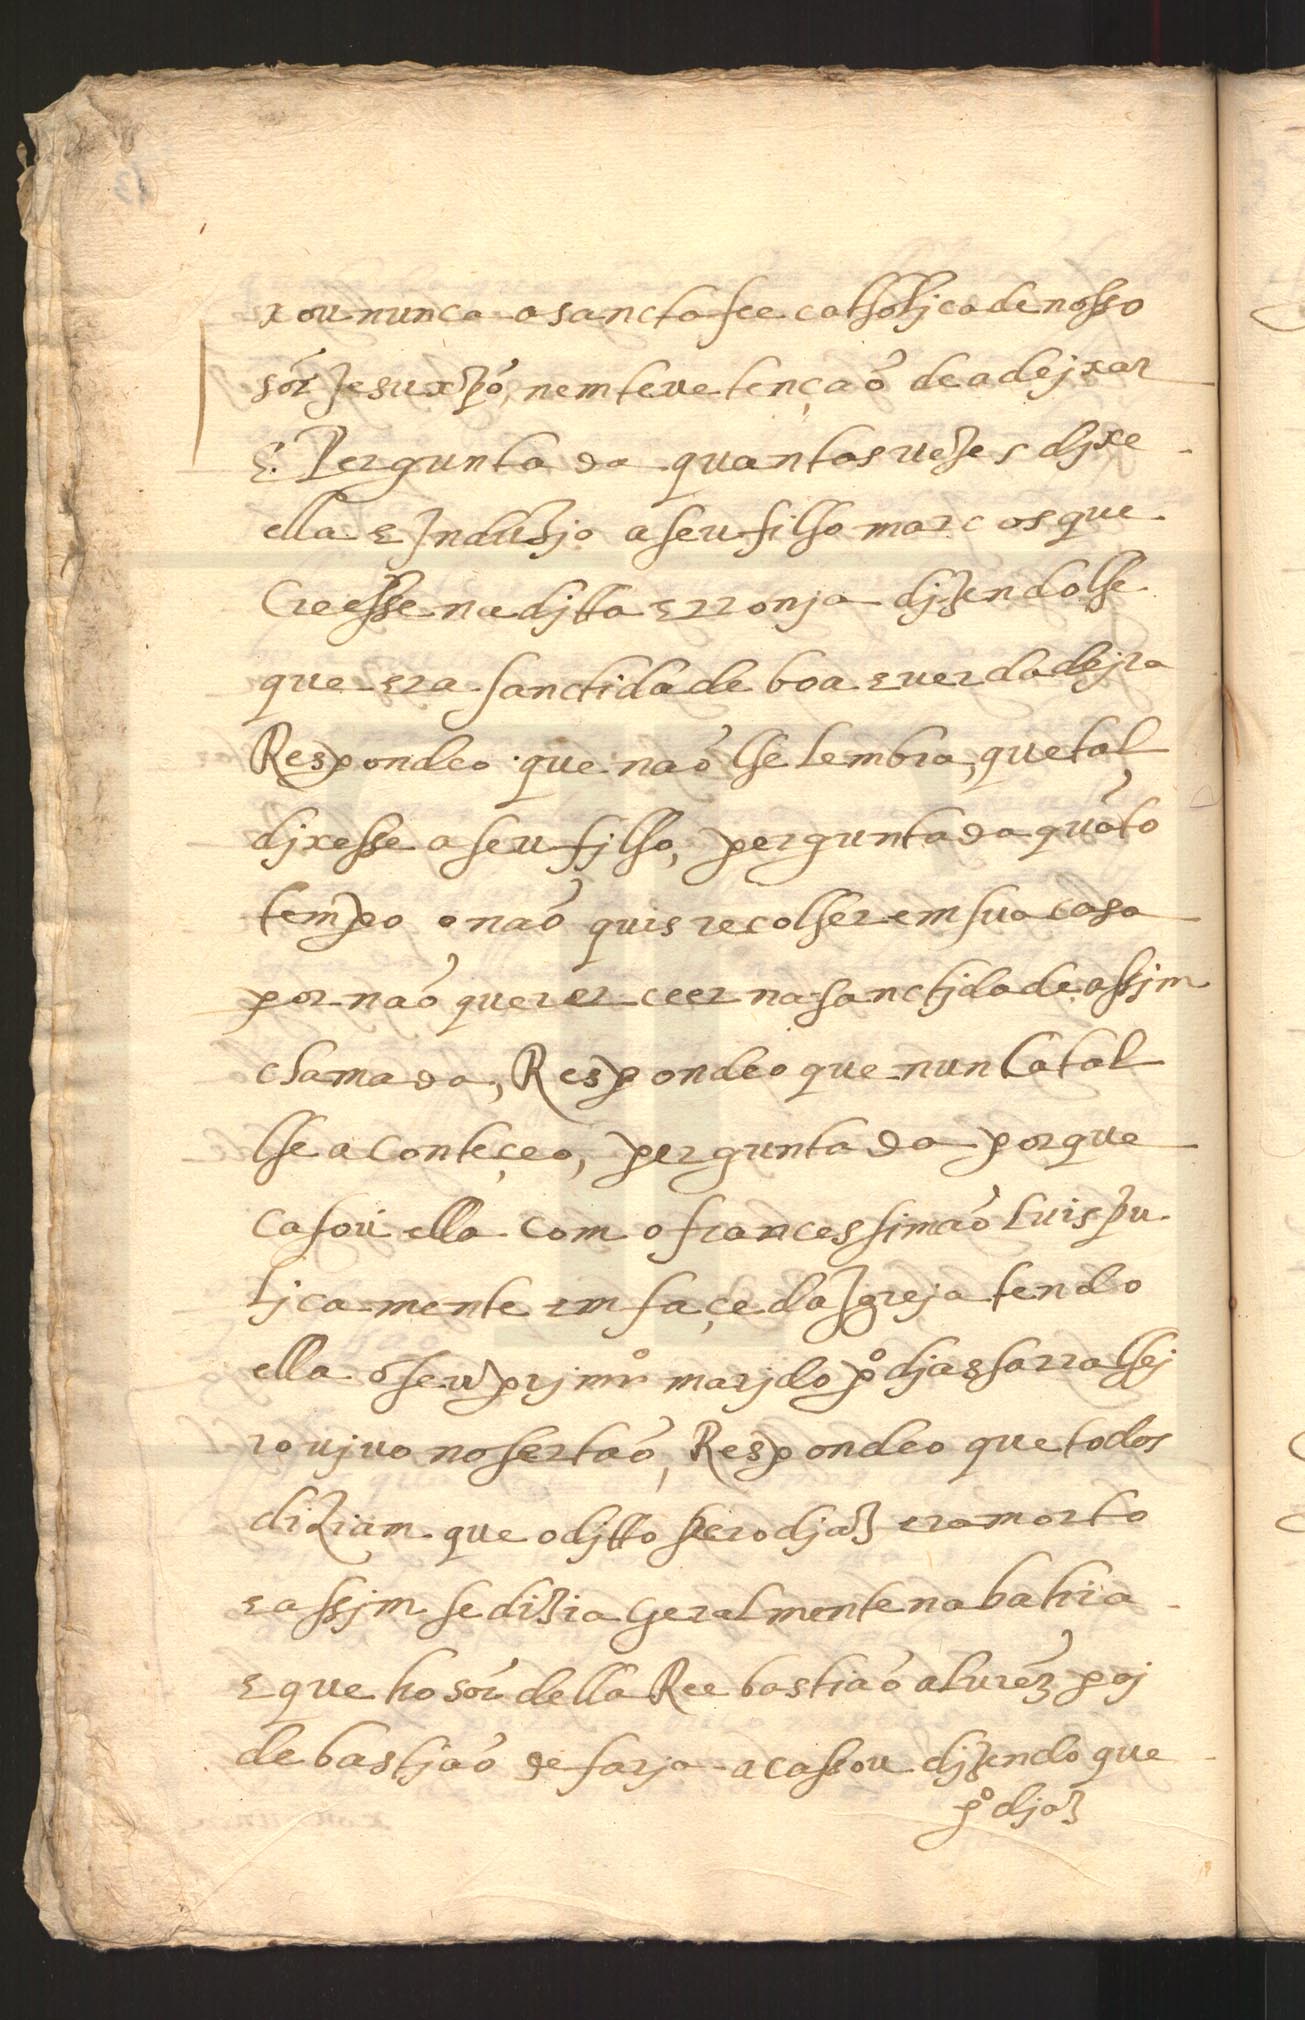 xou nunca a sancta fee catholjca de nosso
sõr Jesu xpõ, nem teve tençaõ de a dejxar
E. Perguntada quantas vezes djxe
ella E Jnduzjo a seu filho marcos que
Creesse na djtta erronja djzendolhe
que era sanctidade boa e verdadejra
Respondeo que naõ lhe lembra, que tal
djxesse a seu fjlho, perguntada quãto
tempo o naõ quis recolher em sua casa
por naõ querer creer na sanctjdade assjm
chamada, Respondeo que nunca tal
lhe aconteçeo, perguntada porque
casou ella com o frances simaõ luis pu
ljcamente em façe da Jgreja tendo
ella o seu prjmrº marjdo pº djas sarralhej
ro vjvo no sertaõ, Respondeo que todos
diziam que o djtto pero djaz era morto
e assjm se dizia geralmente na bahia
E que ho sõr della Ree bastiaõ alvrẽz paj
de bastjaõ de farja a cassou djzendo que
pº djaz